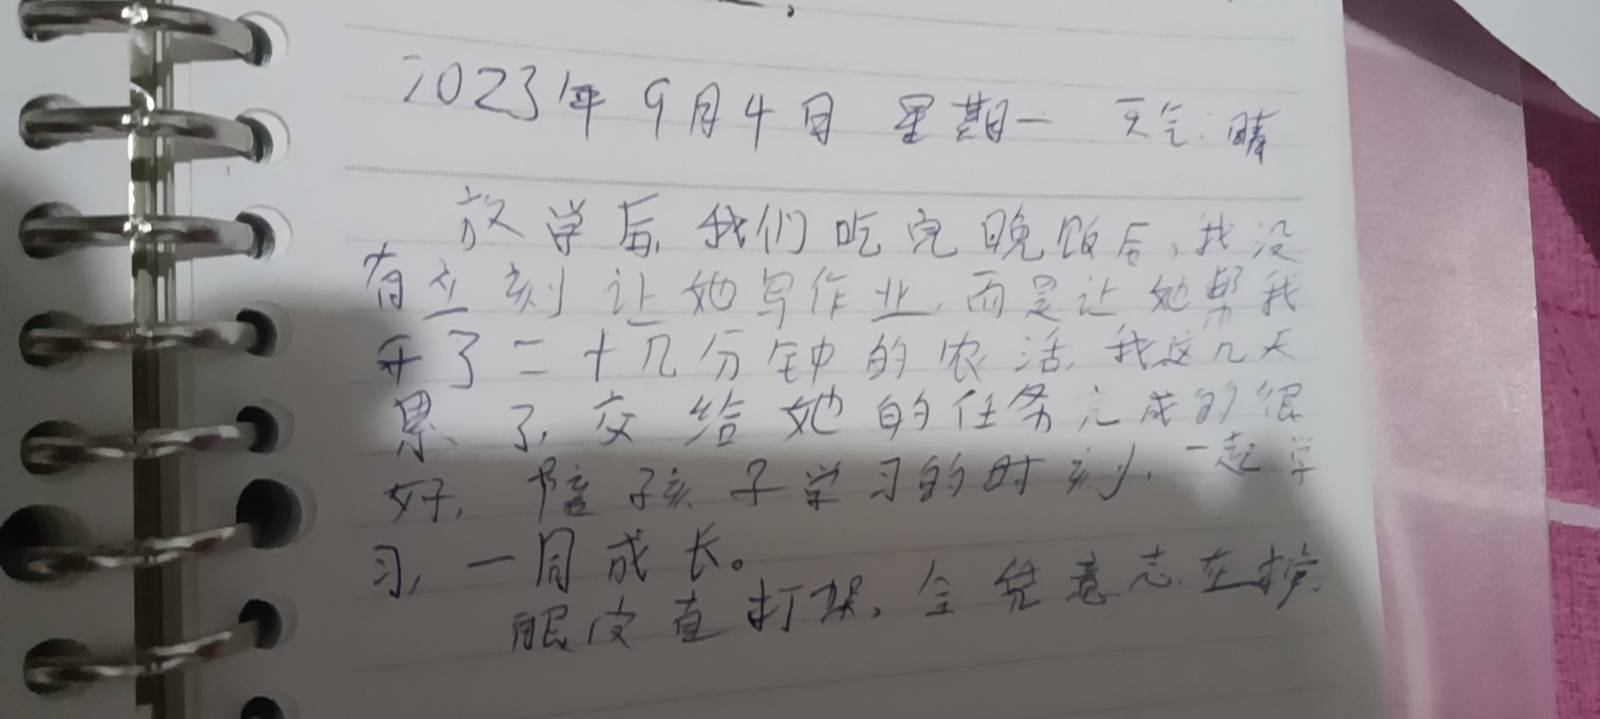 2023年9月4日 星期一 天气:晴
放学后,我们吃完晚饭后,我没
有立刻让她写作业,而是让她帮我
干了二十几分钟的农活,我这几天
累了,交给她的任务完成的很
好,陪孩子学习的时刻,一起学
习,一同成长。
眼皮直打架,全凭意志在撑